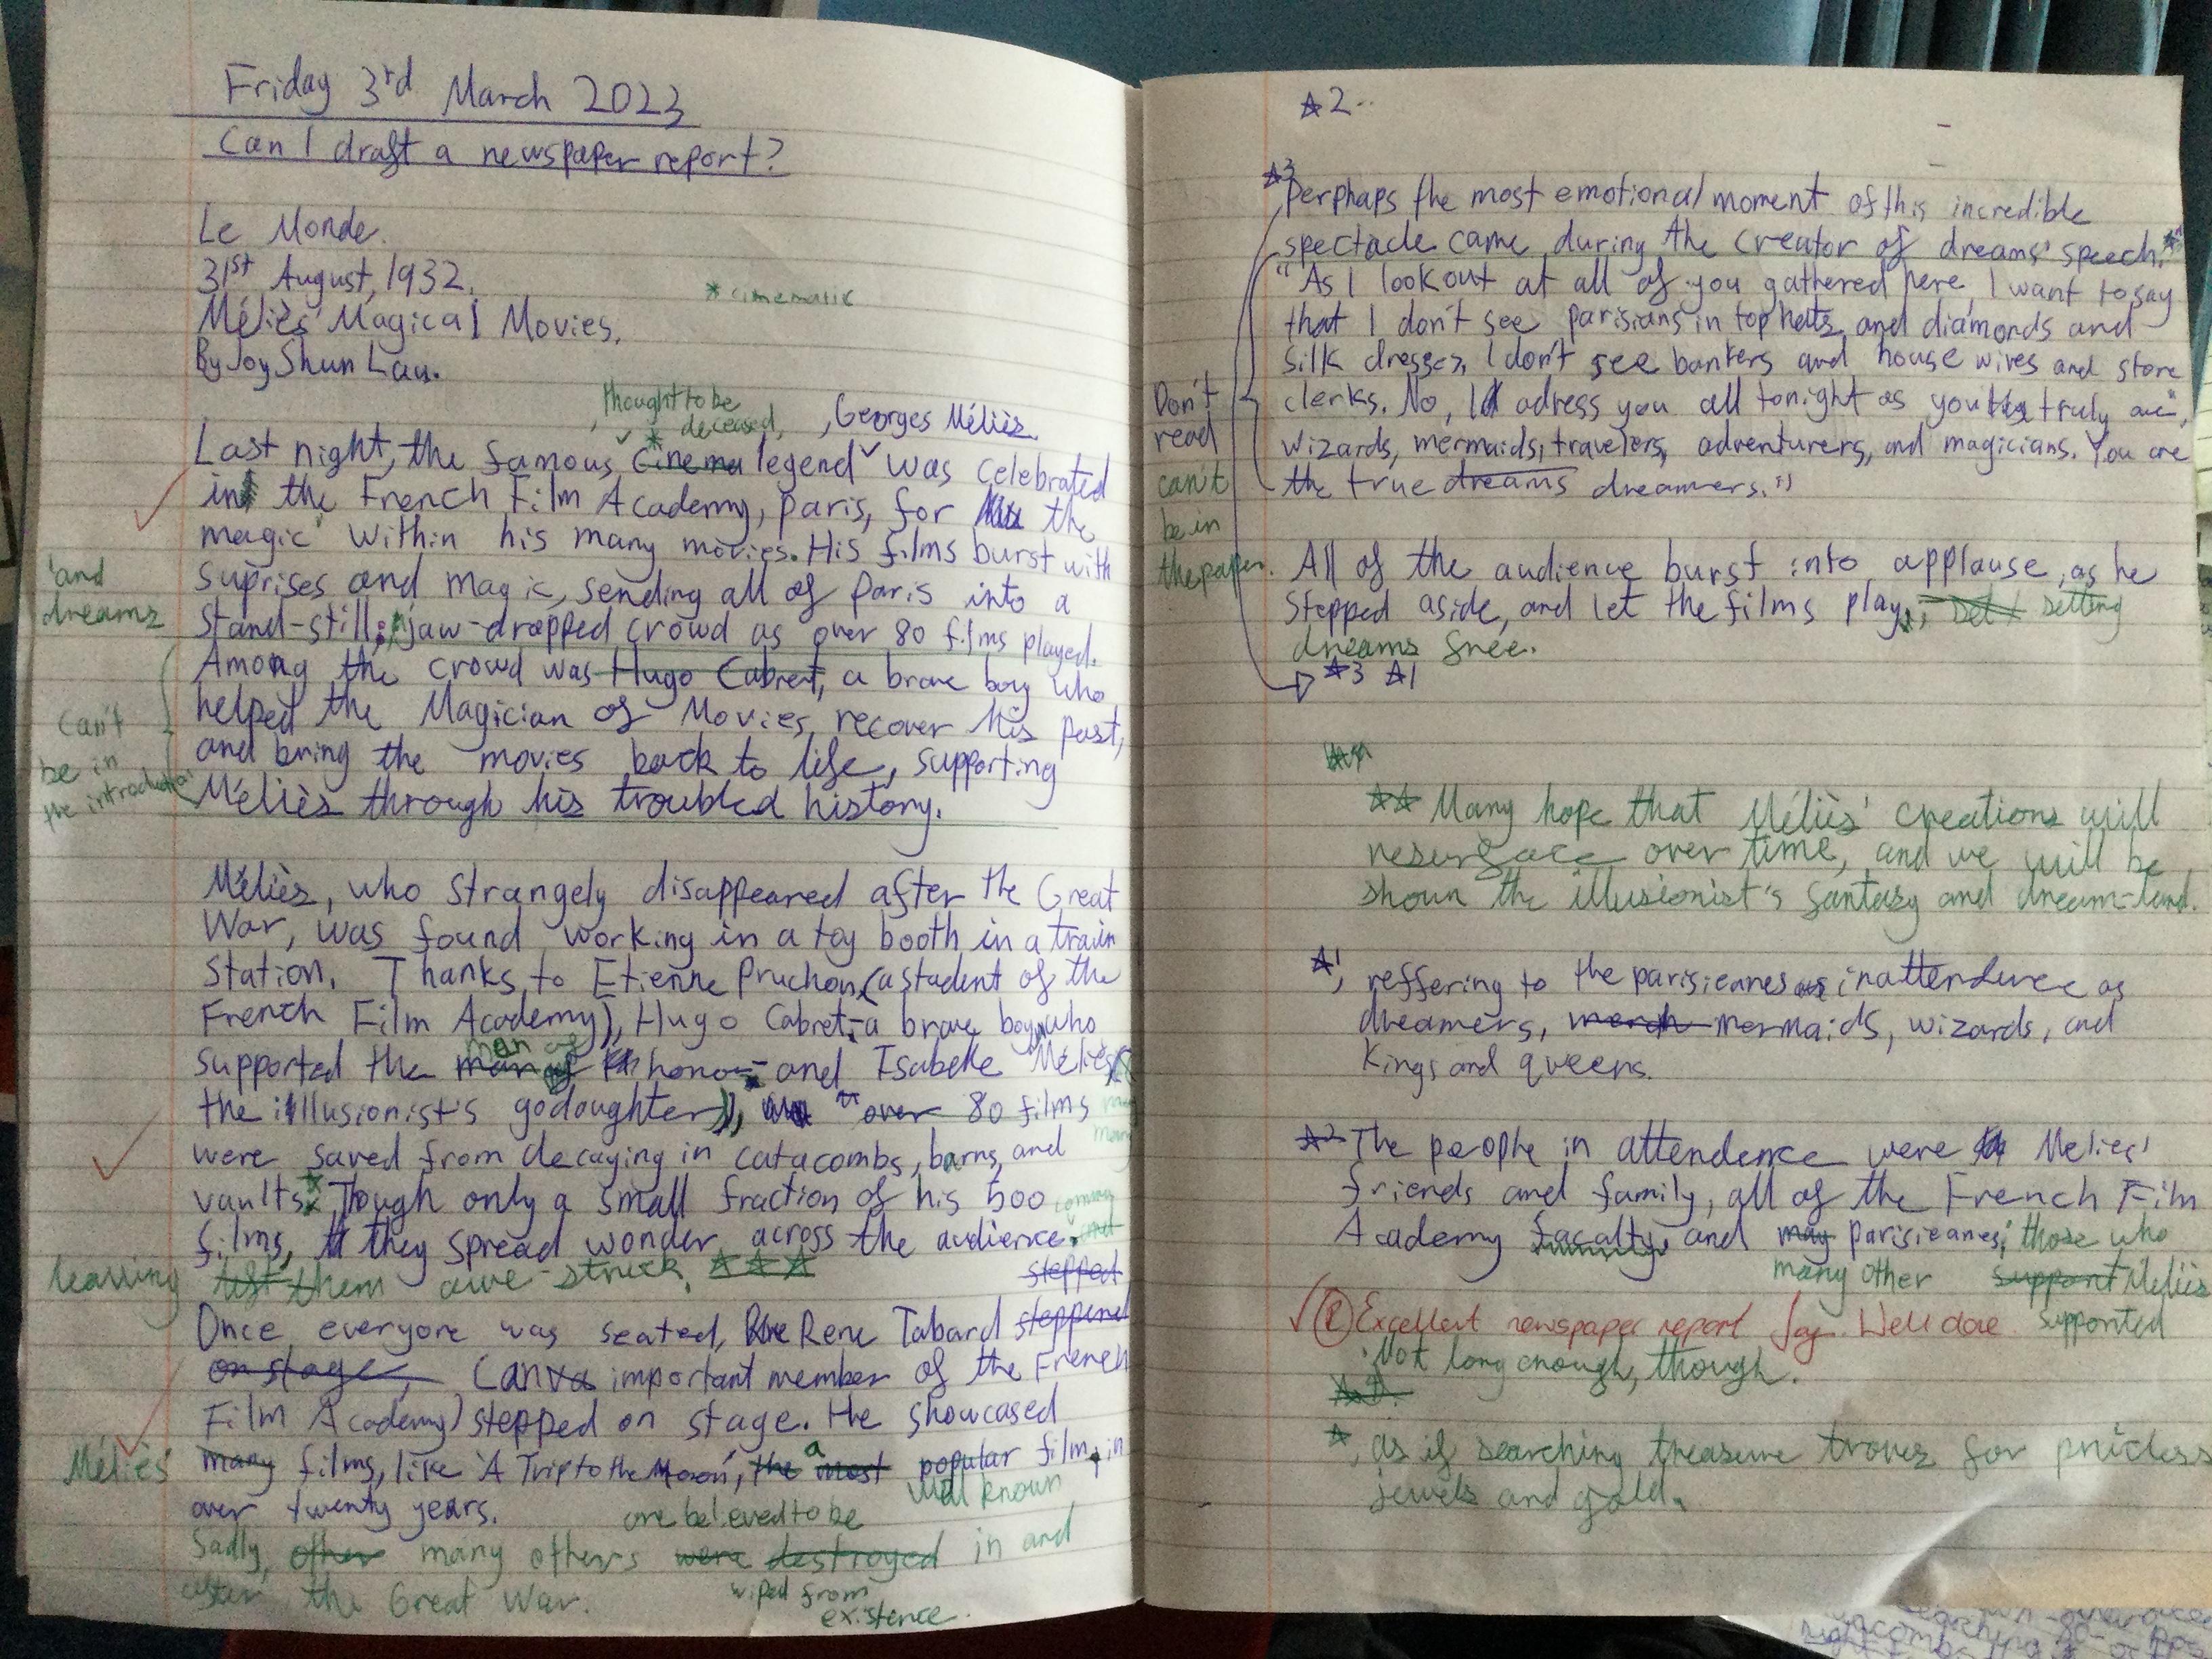 Friday 3rd March 2023
Can I draft a newspaper report?
Le Monde.
31st August, 1932.
* cinematic
Méliès' Magical Movies.
By Joy Shun Lau.
thought to be
deceased,
, Georges Méliès,
Last night, the famous cinema legend was celebrated
in the French Film Academy, Paris, for the
magic within his many movies. His films burst with
suprises and magic, sending all of Paris into a
'and
dreams
stand-still; jaw-dropped crowd as over 80 films played.
Among the crowd was Hugo Cabret, a brave boy who
helped the Magician of Movies, recover his past,
and bring the movies back to life, supporting
Méliès through his troubled history.
Can't
be in
the introduction
Méliès, who strangely disappeared after the Great
War, was found working in a toy booth in a train
station. Thanks to Etienne Pruchon, (a student of the
French Film Academy), Hugo Cabret, -a brave boy who
man of
supported the man of honour- and Isabelle Méliès
the illusionist's godaughter), over 80 films
were saved from decaying in catacombs, barns, and
vaults. Tough only a small fraction of his 500
films, they spread wonder across the audience,
leaving left them awe-struck.
stepped
Once everyone was seated, Rene Tabard stepped
on stage, (an important member of the French
Film Academy) stepped on stage. He showcased
Méliès' many films, like 'A Trip to the Moon', the a most popular film, in
well known
over twenty years.
are believed to be
Sadly, other many others were destroyed in and
after the Great War.
wiped from
existence.
☆2
☆3
Perphaps the most emotional moment of this incredible
spectacle came during the creator of dreams' speech.*
"As I look out at all of you gathered here, I want to say
that I don't see parisians in top hats and diamonds and
silk dresses, I don't see bankers and house wives and store
clerks. No, I adress you all tonight as you truly are",
wizards, mermaids, travelers, adventurers, and magicians. You are
the true dreams dreamers."
Don't
read
can't
be in
the paper.
All of the audience burst into applause, as he
stepped aside, and let the films play, set setting
dreams free.
☆3 ☆1
☆☆ Many hope that Méliès' creations will
resurface over time, and we will be
shown the illusionist's fantasy and dream-land.
☆1, reffering to the parisieanes as in attendence as
dreamers, merch mermaids, wizards, and
kings and queens.
☆2 The people in attendence were Melies'
friends and family, all of the French Film
Academy faculty, and may parisieanes; those who
many other support Méliès
supported
Excellent newspaper report Joy. Well done.
Not long enough, though.
☆, as if searching treasure troves for priceless
jewels and gold.